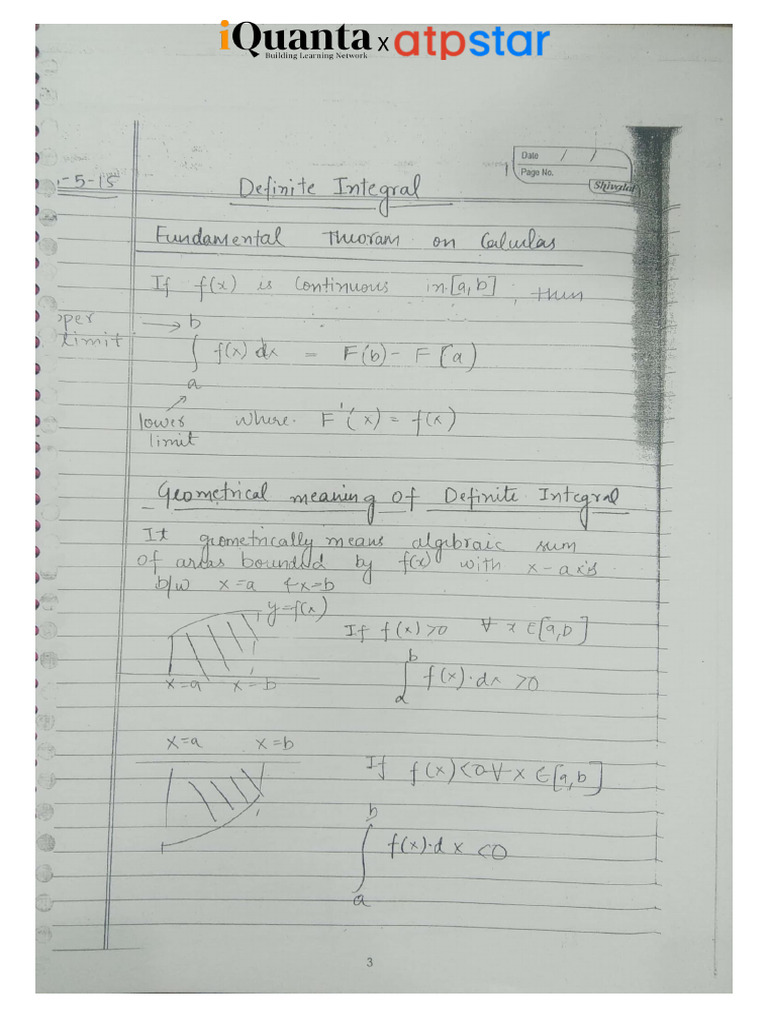 iQuanta x atpstar
Building Learning Network
Date / /
Page No.
Shivalal
-5-15
Definite Integral
Fundamental Theoram on Calculas
If f(x) is continuous in [a,b], then
b
∫ f(x) dx = F(b) - F(a)
a
limit
lower limit
where. F'(x) = f(x)
Geometrical meaning of Definite Integral
It geometrically means algibraic sum
of areas bounded by f(x) with x-axis
b/w x=a & x=b
y=f(x)
If f(x)>0 ∀ x ∈ [a,b]
x=a x=b
b
∫ f(x)·dx >0
a
x=a x=b
If f(x)<0 ∀ x ∈ [a,b]
b
∫ f(x)·dx <0
a
3